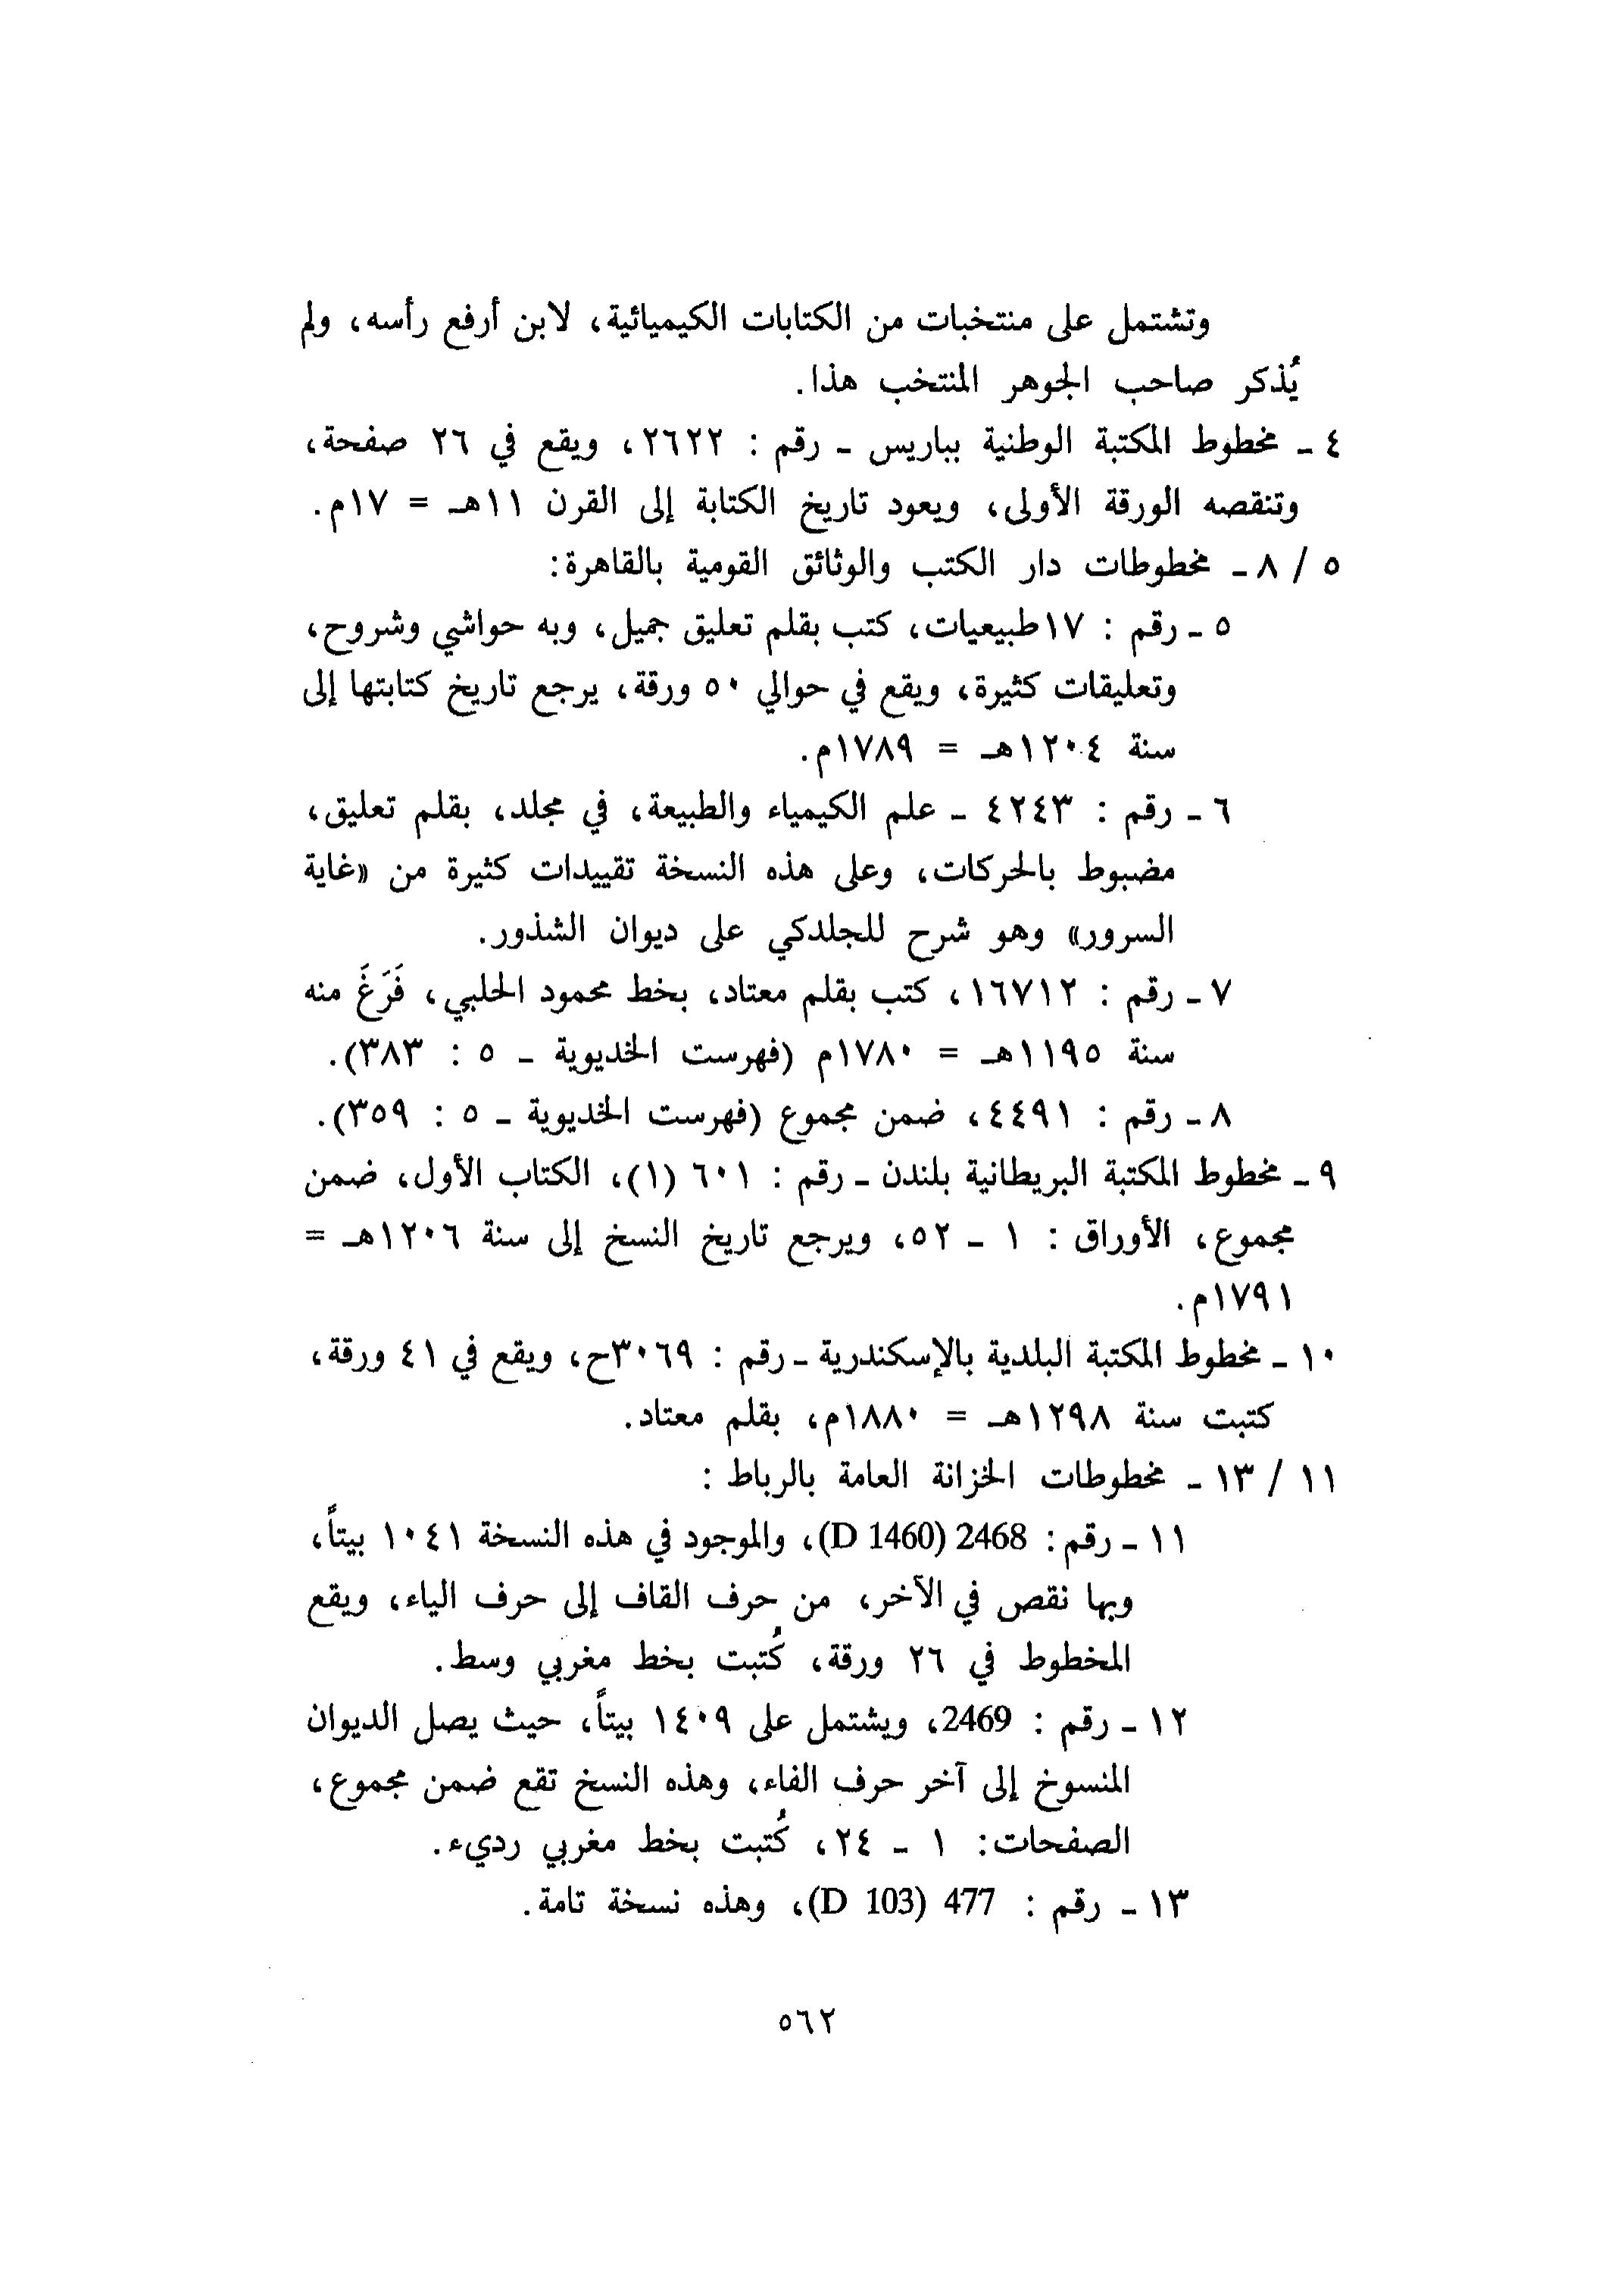 وتشتمل على منتخبات من الكتابات الكيميائية، لابن أرفع رأسه، ولم
يُذكر صاحب الجوهر المنتخب هذا.
٤ ـ مخطوط المكتبة الوطنية بباريس ـ رقم : ٢٦٢٢، ويقع في ٢٦ صفحة،
وتنقصه الورقة الأولى، ويعود تاريخ الكتابة إلى القرن ١١هـ = ١٧م.
٥ / ٨ ـ مخطوطات دار الكتب والوثائق القومية بالقاهرة:
٥ ـ رقم : ١٧طبيعيات، كتب بقلم تعليق جميل، وبه حواشي وشروح،
وتعليقات كثيرة، ويقع في حوالي ٥٠ ورقة، يرجع تاريخ كتابتها إلى
سنة ١٢٠٤هـ = ١٧٨٩م.
٦ ـ رقم : ٤٢٤٣ ـ علم الكيمياء والطبيعة، في مجلد، بقلم تعليق،
مضبوط بالحركات، وعلى هذه النسخة تقييدات كثيرة من «غاية
السرور» وهو شرح للجلدكي على ديوان الشذور.
٧ ـ رقم : ١٦٧١٢، كتب بقلم معتاد، بخط محمود الحلبي، فَرَغَ منه
سنة ١١٩٥هـ = ١٧٨٠م (فهرست الخديوية ـ ٥ : ٣٨٣).
٨ ـ رقم : ٤٤٩١، ضمن مجموع (فهرست الخديوية ـ ٥ : ٣٥٩).
٩ ـ مخطوط المكتبة البريطانية بلندن ـ رقم : ٦٠١ (١)، الكتاب الأول، ضمن
مجموع، الأوراق : ١ ـ ٥٢، ويرجع تاريخ النسخ إلى سنة ١٢٠٦هـ =
١٧٩١م.
١٠ ـ مخطوط المكتبة البلدية بالإسكندرية ـ رقم : ٣٠٦٩ح، ويقع في ٤١ ورقة،
كتبت سنة ١٢٩٨هـ = ١٨٨٠م، بقلم معتاد.
١١ / ١٣ ـ مخطوطات الخزانة العامة بالرباط :
١١ ـ رقم : 2468 (D 1460)، والموجود في هذه النسخة ١٠٤١ بيتاً،
وبها نقص في الآخر، من حرف القاف إلى حرف الياء، ويقع
المخطوط في ٢٦ ورقة، كُتبت بخط مغربي وسط.
١٢ ـ رقم : 2469، ويشتمل على ١٤٠٩ بيتاً، حيث يصل الديوان
المنسوخ إلى آخر حرف الفاء، وهذه النسخ تقع ضمن مجموع،
الصفحات: ١ ـ ٢٤، كُتبت بخط مغربي رديء.
١٣ ـ رقم : 477 (D 103)، وهذه نسخة تامة.
٥٦٢